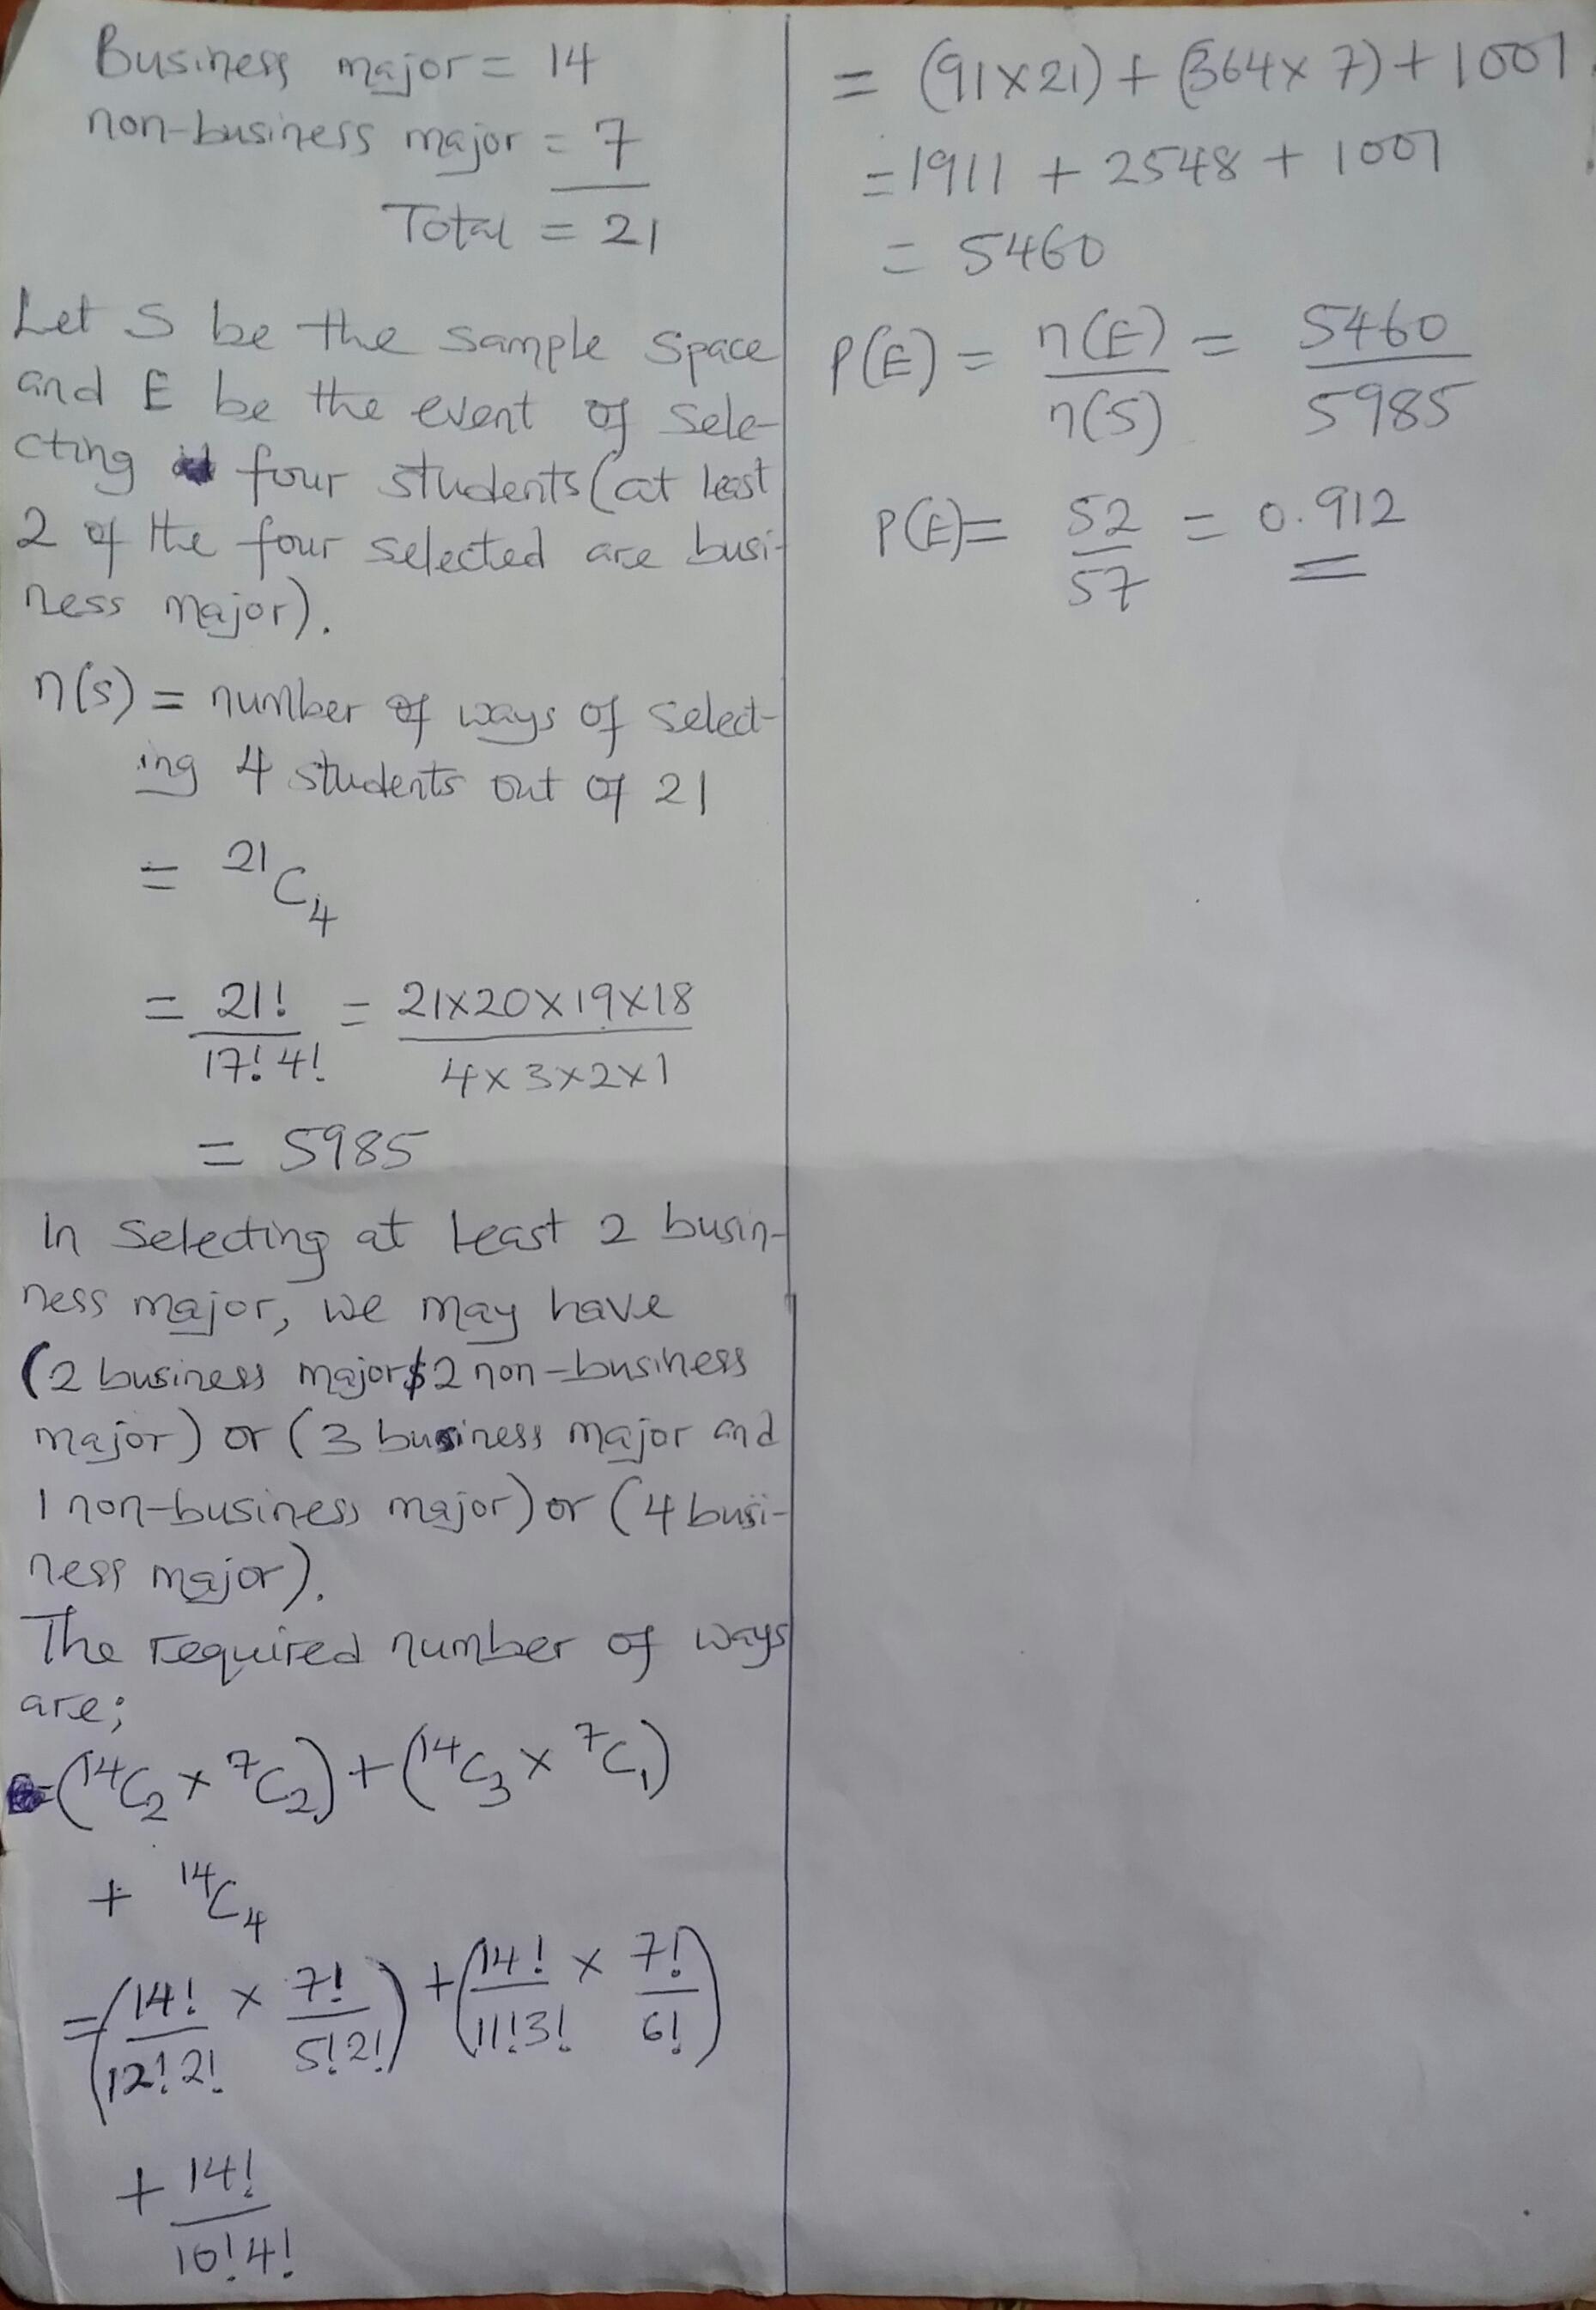 Business major = 14
non-business major = 7
Total = 21
Let S be the sample space
and E be the event of sele-
cting four students (at least
2 of the four selected are busi-
ness major).
n(s) = number of ways of select-
ing 4 students out of 21
= ²¹C₄
= 21! / 17! 4! = 21×20×19×18 / 4×3×2×1
= 5985
In selecting at least 2 busin-
ness major, we may have
(2 business major & 2 non-business
major) or (3 business major and
1 non-business major) or (4 busi-
ness major).
The required number of ways
are;
= (¹⁴C₂ × ⁷C₂) + (¹⁴C₃ × ⁷C₁)
+ ¹⁴C₄
= (14! / 12! 2! × 7! / 5! 2!) + (14! / 11! 3! × 7! / 6!)
+ 14! / 10! 4!
= (91×21) + (364×7) + 1001
= 1911 + 2548 + 1001
= 5460
P(E) = n(E) / n(S) = 5460 / 5985
P(E) = 52 / 57 = 0.912